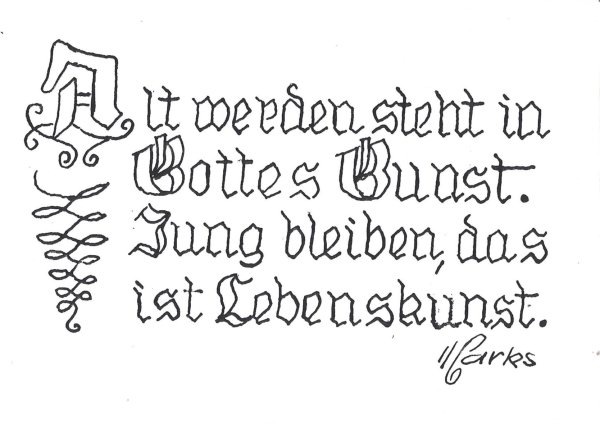 Alt werden steht in
Gottes Gunst.
Jung bleiben, das
ist Lebenskunst.